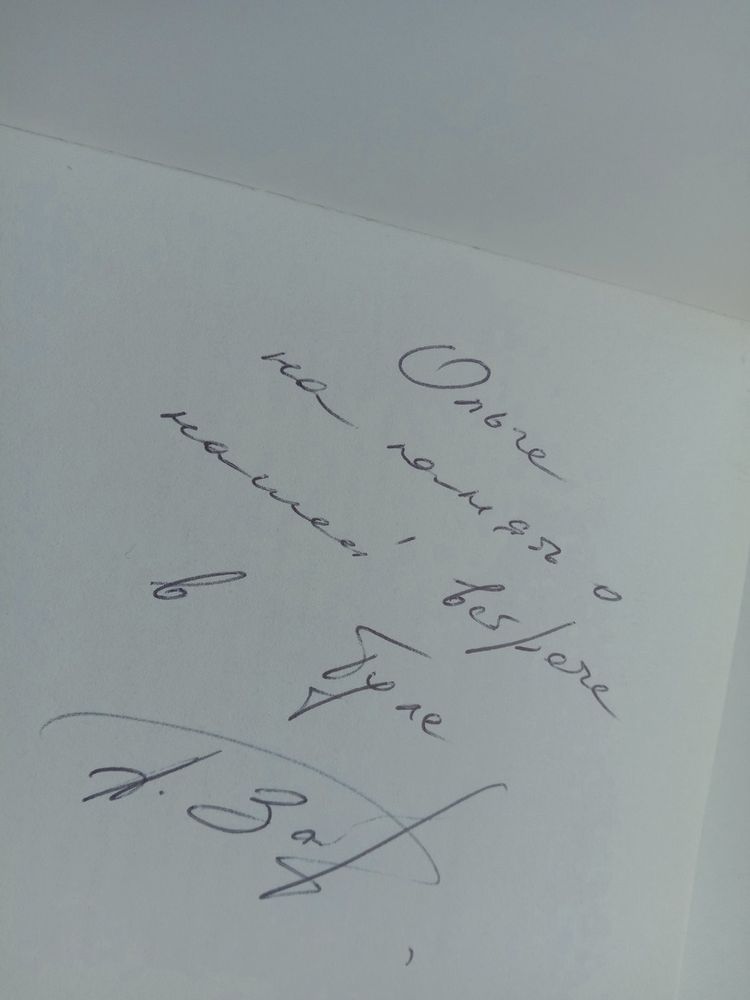 Ольге
на память о
нашей встрече
в Туле